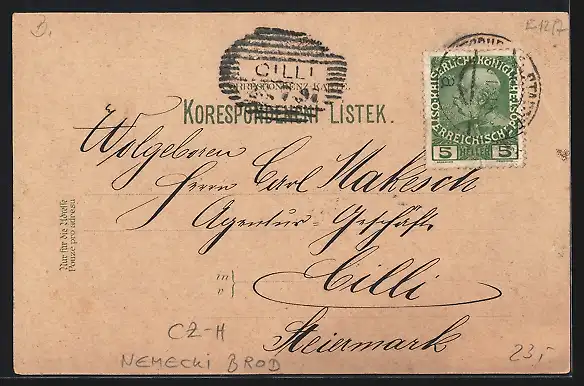 B.
E12/7
CILLI
KORESPONDENČNÍ LÍSTEK.
KAISERLICH KÖNIGLICHE
ÖSTERREICHISCHE
5 HELLER 5
Wolgeboren
Herrn Carl Makesch
Agentur Geschäft
Nur für die Adresse
Pouze pro adresu
in
v
Cilli
Steiermark
CZ-H
NEMECKI BROD
23,-